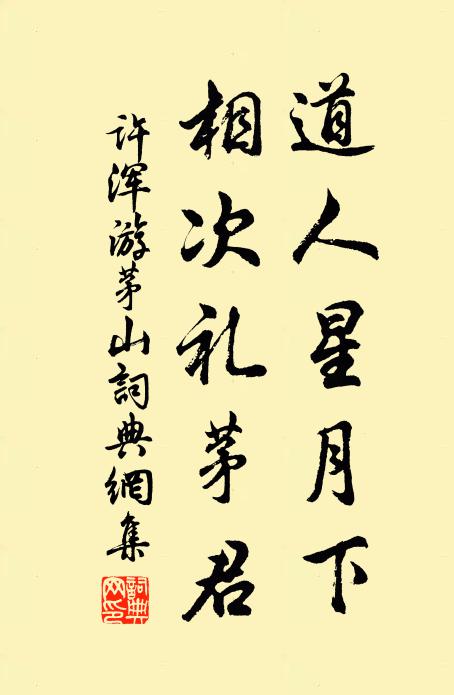 道人星月下
相次礼茅君
许浑游茅山詞典網集
詞典网印